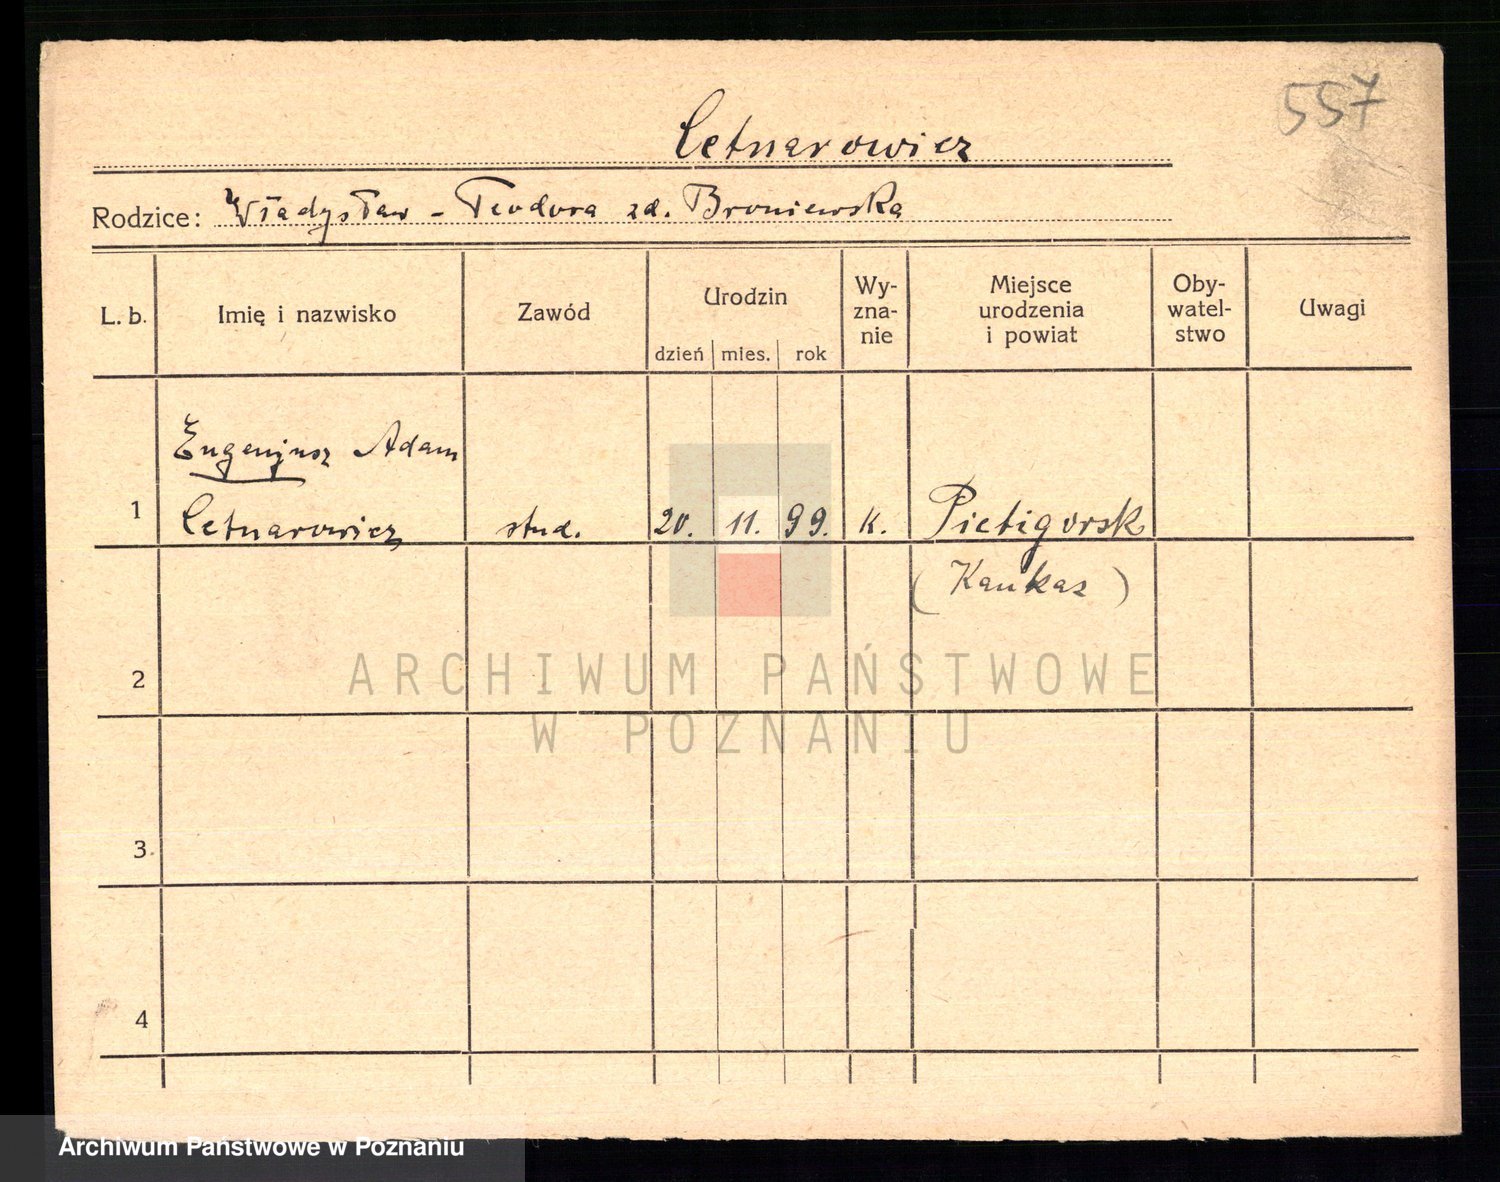 557
Letnarowicz
Rodzice: Władysław - Teodora zd. Broniewska
L. b. Imię i nazwisko Zawód Urodzin dzień mies. rok Wy-zna-nie Miejsce urodzenia i powiat Oby-watel-stwo Uwagi
Eugenjusz Adam
1 Letnarowicz stud. 20. 11. 99. k. Pietigorsk
(Kaukaz)
2
ARCHIWUM PAŃSTWOWE
W POZNANIU
3
4
Archiwum Państwowe w Poznaniu